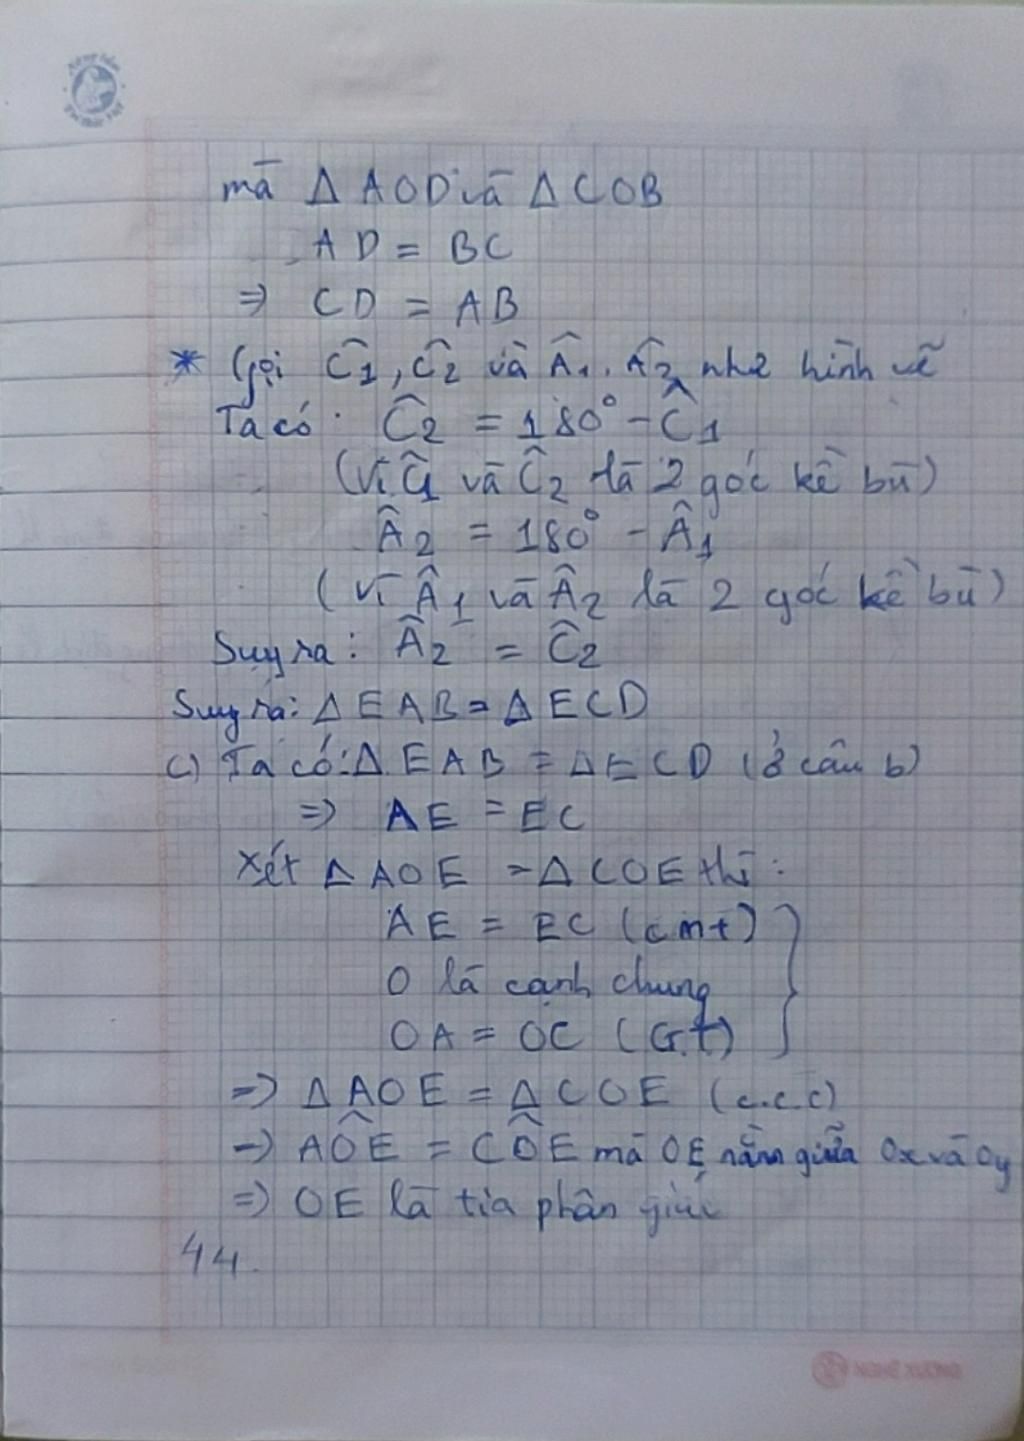 mà Δ AOD và Δ COB
AD = BC
⇒ CD = AB
* Gọi Ĉ1, Ĉ2 và Â1, Â2 như hình vẽ
Ta có: Ĉ2 = 180° - Ĉ1
(vì Ĉ1 và Ĉ2 là 2 góc kề bù)
Â2 = 180° - Â1
(vì Â1 và Â2 là 2 góc kề bù)
Suy ra: Â2 = Ĉ2
Suy ra: Δ EAB = Δ ECD
c) Ta có: Δ EAB = Δ ECD (ở câu b)
⇒ AE = EC
Xét Δ AOE = Δ COE thì:
AE = EC (cmt)
O là cạnh chung
OA = OC (G.t)
⇒ Δ AOE = Δ COE (c.c.c)
⇒ AÔE = CÔE mà OE nằm giữa Ox và Oy
⇒ OE là tia phân giác
44.